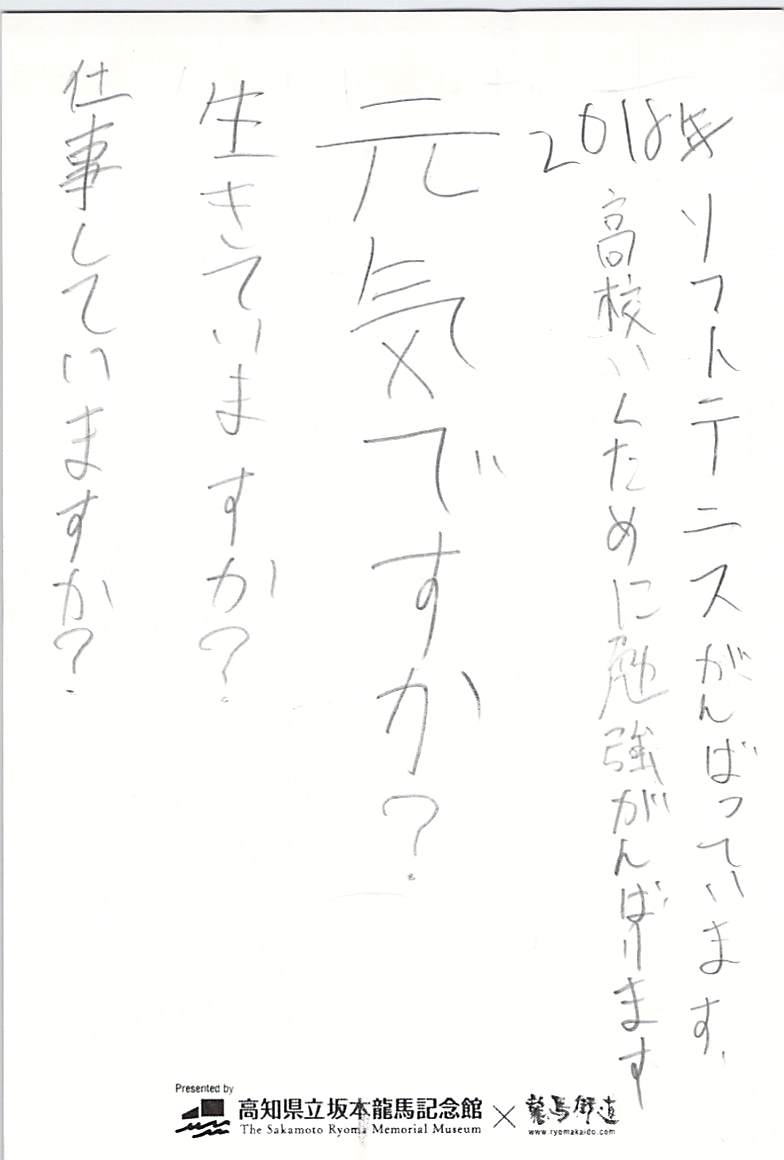 2018年
ソフトテニスがんばっています。
高校いくために勉強がんばります
元気ですか?
生きていますか?
仕事していますか?
Presented by
高知県立坂本龍馬記念館
The Sakamoto Ryoma Memorial Museum
×
龍馬街道
www.ryomakaido.com